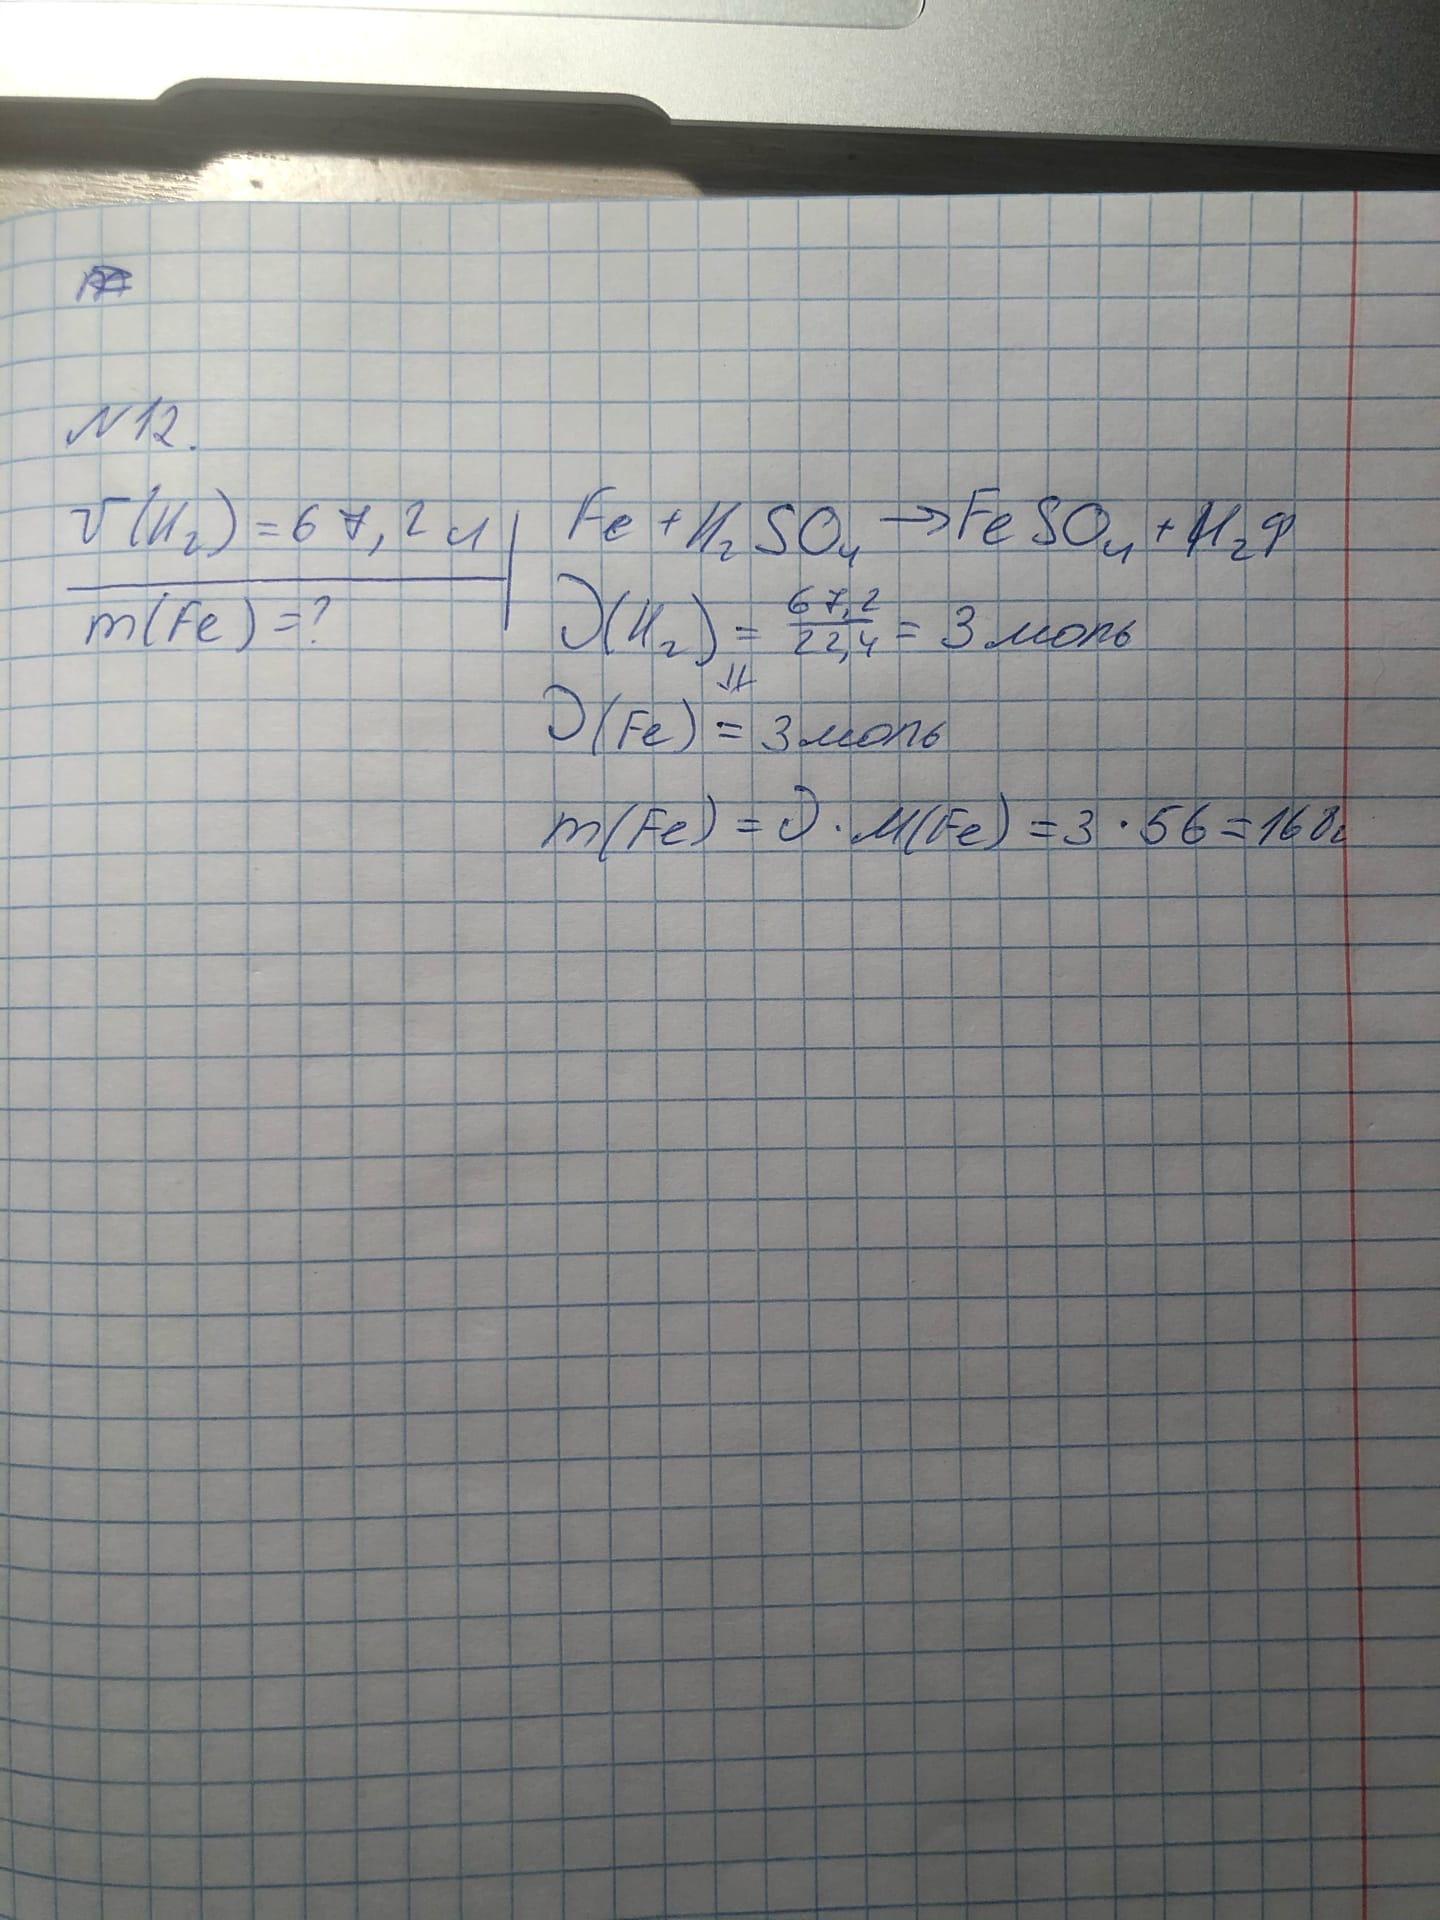 N12.
V(H₂) = 67,2 л
m(Fe) = ?
Fe + H₂SO₄ → FeSO₄ + H₂↑
ν(H₂) = 67,2/22,4 = 3 моль
⇓
ν(Fe) = 3 моль
m(Fe) = ν · M(Fe) = 3 · 56 = 168г